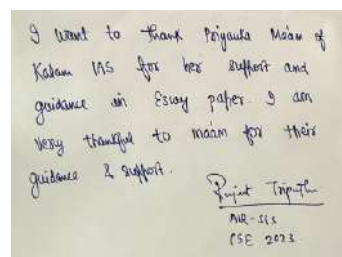 I want to thank Priyanka Ma'am of
Kalam IAS for her support and
guidance in Essay paper. I am
very thankful to ma'am for their
guidance & support.
Tripathi
AIR-
CSE 2023